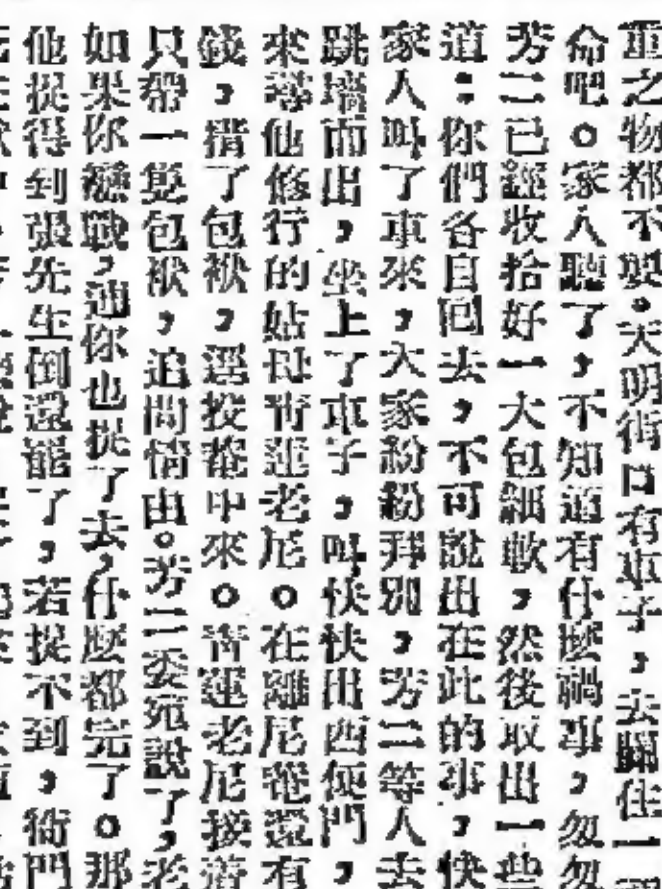 重之物都不要。天明街口有車子，去關住一
命吧。家人聽了，不知道有什麼禍事，匆匆
芳二已經收拾好一大包細軟，然後取出一些
道：你們各自回去，不可說出在此的事，快
家人叫了車來，大家紛紛拜別，芳二等人去
跳墻而出，坐上了車子，叫快快出西便門，
來尋他修行的姑母青蓮老尼。在離尼菴還有
錢，揹了包袱，逕投菴中來。青蓮老尼接著
只帶一隻包袱，追問情由。芳二委宛說了，老
如果你戀戰，連你也捉了去，什麼都完了。那
他捉得到張先生倒還罷了，若捉不到，衙門